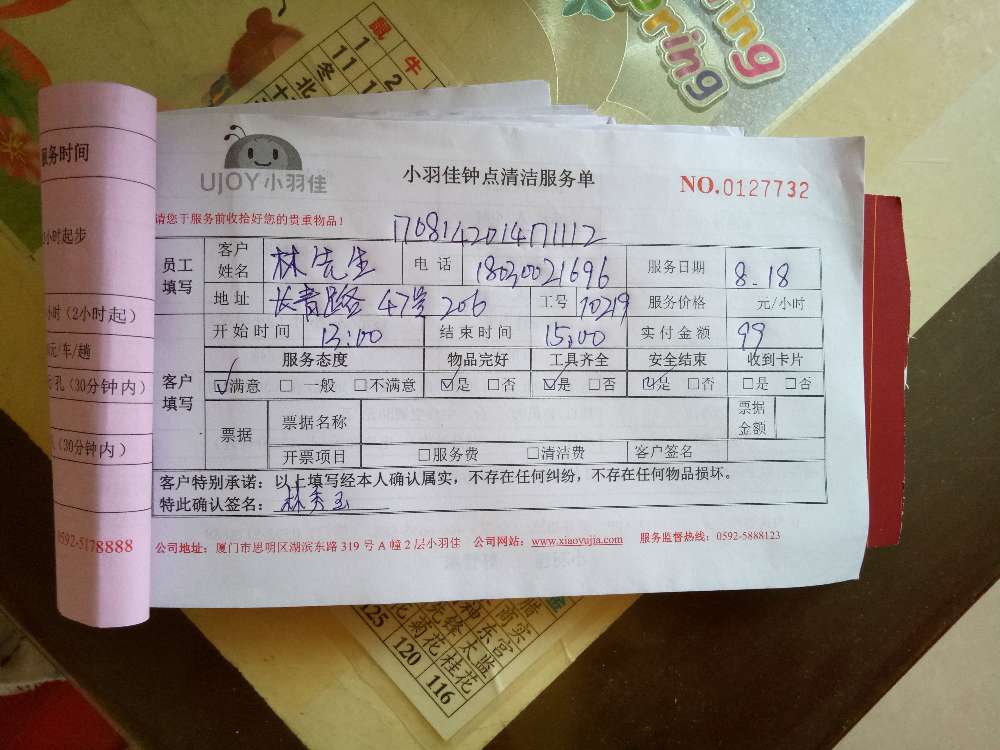 ring
oning
鼠 牛
1 2
11
冬
北
服务时间
小时起步
小时（2小时起）
元/车/趟
孔（30分钟内）
（30分钟内）
0592-5178888
UJOY小羽佳
小羽佳钟点清洁服务单
NO.0127732
请您于服务前收拾好您的贵重物品！
170814201471112
员工填写 客户姓名 林先生 电话 18030021696 服务日期 8.18
地址 长青路47号206 工号 10219 服务价格 元/小时
客户填写 开始时间 13:00 结束时间 15:00 实付金额 99
服务态度 物品完好 工具齐全 安全结束 收到卡片
☑满意 □一般 □不满意 ☑是 □否 ☑是 □否 ☑是 □否 □是 □否
票据 票据名称 票据金额
开票项目 □服务费 □清洁费 客户签名
客户特别承诺：以上填写经本人确认属实，不存在任何纠纷，不存在任何物品损坏。
特此确认签名：林秀玉
公司地址：厦门市思明区湖滨东路319号A幢2层小羽佳 公司网站：www.xiaoyujia.com 服务监督热线：0592-5888123
腊
商 实
神 东 宫
先锋 太监
菊花 桂花
125 120 116